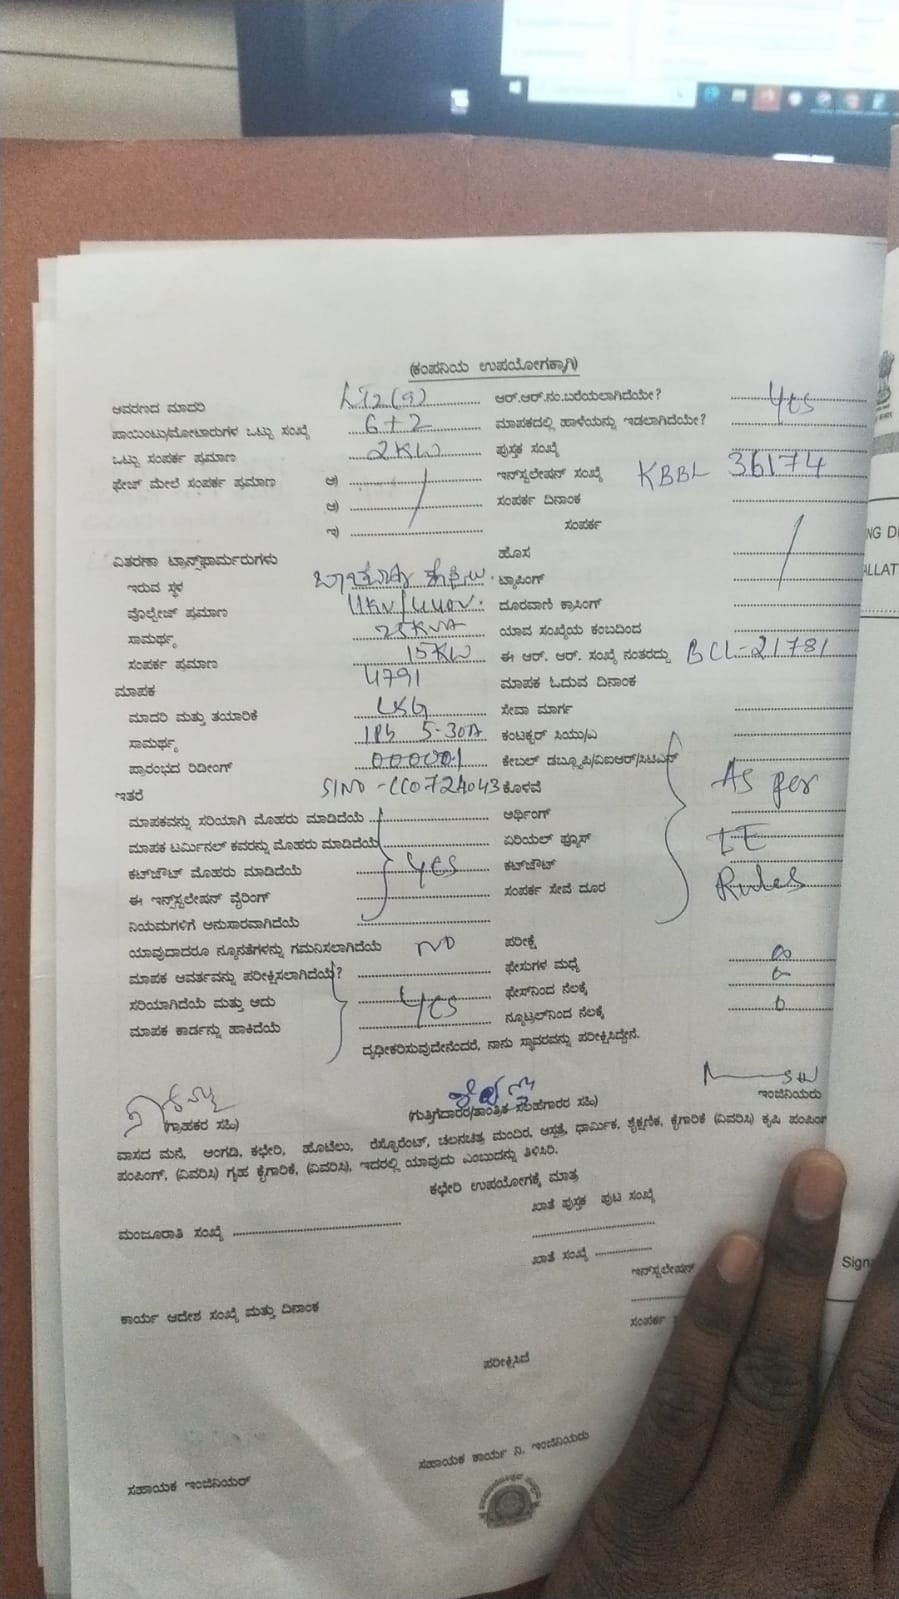 (ಕಂಪನಿಯ ಉಪಯೋಗಕ್ಕಾಗಿ)
ಆವರಣದ ಮಾದರಿ LT2(a) ಆರ್.ಆರ್.ನಂ.ಬರೆಯಲಾಗಿದೆಯೇ?
ಪಾಯಿಂಟು/ಮೋಟಾರುಗಳ ಒಟ್ಟು ಸಂಖ್ಯೆ 6+2 ಮಾಪಕದಲ್ಲಿ ಹಾಳೆಯನ್ನು ಇಡಲಾಗಿದೆಯೇ? Yes
ಒಟ್ಟು ಸಂಪರ್ಕ ಪ್ರಮಾಣ 2KW ಪುಸ್ತಕ ಸಂಖ್ಯೆ
ಫೇಜ್ ಮೇಲೆ ಸಂಪರ್ಕ ಪ್ರಮಾಣ ಅ) ಇನ್‌ಸ್ಟಲೇಷನ್ ಸಂಖ್ಯೆ KBBL 36174
ಆ) ಸಂಪರ್ಕ ದಿನಾಂಕ
ಇ) ಸಂಪರ್ಕ
ವಿತರಣಾ ಟ್ರಾನ್ಸ್‌ಫಾರ್ಮರುಗಳು ಹೊಸ
ಇರುವ ಸ್ಥಳ ಟ್ಯಾಪಿಂಗ್
ವೊಲ್ಟೇಜ್ ಪ್ರಮಾಣ 11KV/440V. ದೂರವಾಣಿ ಕ್ರಾಸಿಂಗ್
ಸಾಮರ್ಥ್ಯ 25KVA ಯಾವ ಸಂಖ್ಯೆಯ ಕಂಬದಿಂದ
ಸಂಪರ್ಕ ಪ್ರಮಾಣ 15KW ಈ ಆರ್. ಆರ್. ಸಂಖ್ಯೆ ನಂತರದ್ದು BCL-21781
ಮಾಪಕ 4791 ಮಾಪಕ ಓದುವ ದಿನಾಂಕ
ಮಾದರಿ ಮತ್ತು ತಯಾರಿಕೆ L&G ಸೇವಾ ಮಾರ್ಗ
ಸಾಮರ್ಥ್ಯ 5-30A ಕಂಟಕ್ಟರ್ ಸಿಯು/ಎ
ಪ್ರಾರಂಭದ ರಿಡಿಂಗ್ ಕೇಬಲ್ ಡಬ್ಲೂಪಿ/ಎಐಆರ್/ಸಿಟಿಎಸ್
ಇತರೆ ಕೊಳವೆ As per
ಮಾಪಕವನ್ನು ಸರಿಯಾಗಿ ಮೊಹರು ಮಾಡಿದೆಯೆ ಅರ್ಥಿಂಗ್
ಮಾಪಕ ಟರ್ಮಿನಲ್ ಕವರನ್ನು ಮೊಹರು ಮಾಡಿದೆಯೆ ಏರಿಯಲ್ ಫ್ಯೂಸ್ IE
ಕಟ್‌ಔಟ್ ಮೊಹರು ಮಾಡಿದೆಯೆ Yes ಕಟ್‌ಔಟ್
ಈ ಇನ್‌ಸ್ಟಲೇಷನ್ ವೈರಿಂಗ್ ಸಂಪರ್ಕ ಸೇವೆ ದೂರ Rules
ನಿಯಮಗಳಿಗೆ ಅನುಸಾರವಾಗಿದೆಯೆ
ಯಾವುದಾದರೂ ನ್ಯೂನತೆಗಳನ್ನು ಗಮನಿಸಲಾಗಿದೆಯೆ NO ಪರೀಕ್ಷೆ
ಮಾಪಕ ಆವರ್ತವನ್ನು ಪರೀಕ್ಷಿಸಲಾಗಿದೆಯೆ? ಫೇಸುಗಳ ಮಧ್ಯೆ
ಸರಿಯಾಗಿದೆಯೆ ಮತ್ತು ಅದು Yes ಫೇಸ್‌ನಿಂದ ನೆಲಕ್ಕೆ
ಮಾಪಕ ಕಾರ್ಡನ್ನು ಹಾಕಿದೆಯೆ ನ್ಯೂಟ್ರಲ್‌ನಿಂದ ನೆಲಕ್ಕೆ
ದೃಢೀಕರಿಸುವುದೇನೆಂದರೆ, ನಾನು ಸ್ಥಾವರವನ್ನು ಪರೀಕ್ಷಿಸಿದ್ದೇನೆ.
(ಗ್ರಾಹಕರ ಸಹಿ) (ಗುತ್ತಿಗೆದಾರರ/ತಾಂತ್ರಿಕ ಸಲಹೆಗಾರರ ಸಹಿ) ಇಂಜಿನಿಯರು
ವಾಸದ ಮನೆ, ಅಂಗಡಿ, ಕಛೇರಿ, ಹೊಟೆಲು, ರೆಸ್ಟೊರೆಂಟ್, ಚಲನಚಿತ್ರ ಮಂದಿರ, ಆಸ್ಪತ್ರೆ, ಧಾರ್ಮಿಕ, ಶೈಕ್ಷಣಿಕ, ಕೈಗಾರಿಕೆ (ವಿವರಿಸಿ) ಕೃಷಿ ಪಂಪಿಂಗ್
ಪಂಪಿಂಗ್, (ವಿವರಿಸಿ) ಗೃಹ ಕೈಗಾರಿಕೆ, (ವಿವರಿಸಿ), ಇದರಲ್ಲಿ ಯಾವುದು ಎಂಬುದನ್ನು ತಿಳಿಸಿರಿ.
ಕಛೇರಿ ಉಪಯೋಗಕ್ಕೆ ಮಾತ್ರ
ಖಾತೆ ಪುಸ್ತಕ ಪುಟ ಸಂಖ್ಯೆ
ಮಂಜೂರಾತಿ ಸಂಖ್ಯೆ
ಖಾತೆ ಸಂಖ್ಯೆ
ಇನ್‌ಸ್ಟಲೇಷನ್
ಕಾರ್ಯ ಆದೇಶ ಸಂಖ್ಯೆ ಮತ್ತು ದಿನಾಂಕ
ಸಂಪರ್ಕ
ಪರೀಕ್ಷಿಸಿದೆ
ಸಹಾಯಕ ಇಂಜಿನಿಯರ್ ಸಹಾಯಕ ಕಾರ್ಯ ನಿ. ಇಂಜಿನಿಯರು